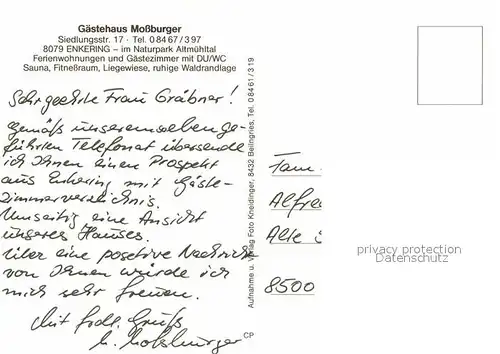 Gästehaus Moßburger
Siedlungsstr. 17 · Tel. 0 84 67 / 3 97
8079 ENKERING – im Naturpark Altmühltal
Ferienwohnungen und Gästezimmer mit DU/WC
Sauna, Fitneßraum, Liegewiese, ruhige Waldrandlage
Sehr geehrte Frau Gräbner!
gemäß unserem soeben ge-
führten Telefonat übersende
ich Ihnen einen Prospekt
aus Enkering mit Gäste-
zimmerverzeichnis.
Umseitig eine Ansicht
unseres Hauses.
Über eine positive Nachricht
von Ihnen würde ich
mich sehr freuen.
Mit frdl. Gruß
Moßburger
CP
Aufnahme u. Verlag Foto Kneidinger, 8432 Beilngries, Tel. 0 84 61 / 3 19
Fam.
Alfre
Alte
8500
privacy protection
Datenschutz